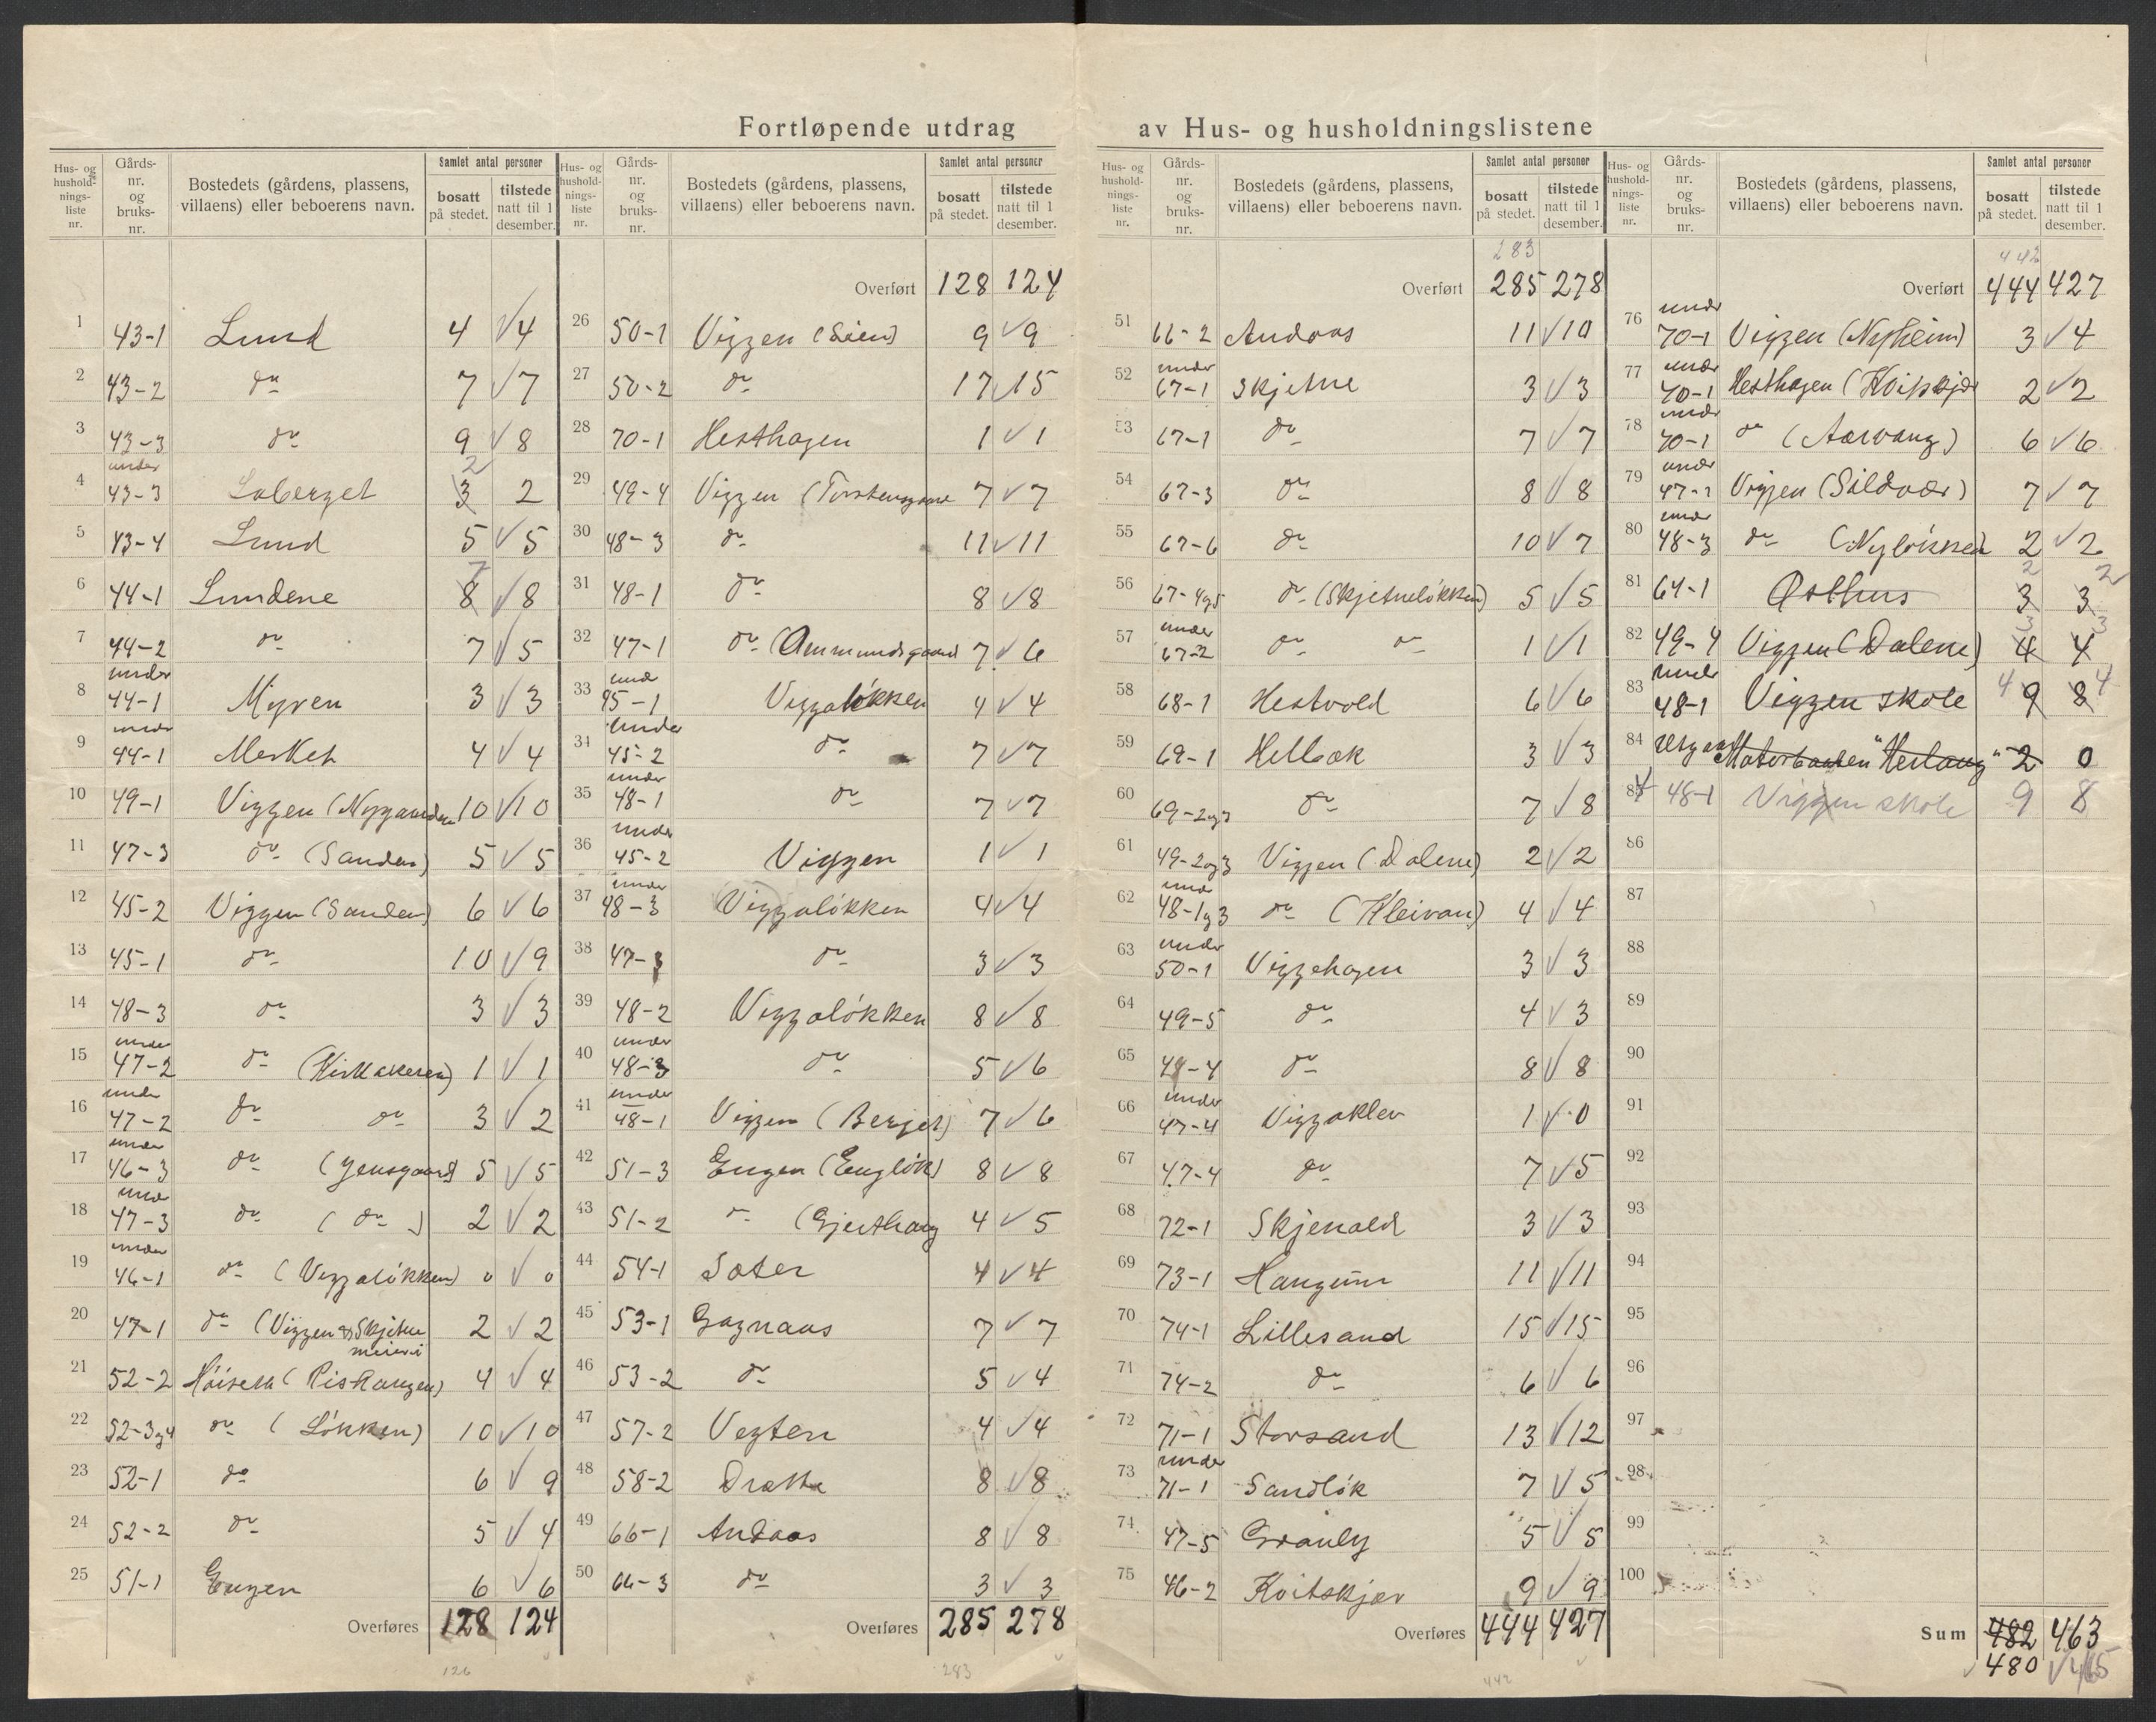 Fortløpende utdrag av Hus- og husholdningslistene
Hus- og husholdningsliste nr. | Gårds-nr. og bruks-nr. | Bostedets (gårdens, plassens, villaens) eller beboerens navn. | Samlet antal personer | bosatt på stedet. | tilstede natt til 1 desember.
1 43-1 Lund 4 √ 4
2 43-2 do 7 √ 7
3 43-3 do 9 √ 8
4 under 43-3 Laberget 3 2 2
5 43-4 Lund 5 √ 5
6 44-1 Lundene 8 7 √ 8
7 44-2 do 7 √ 5
8 under 44-1 Myren 3 √ 3
9 under 44-1 Merket 4 √ 4
10 49-1 Viggen (Nygaarden 10 √ 10
11 47-3 do (Sanden) 5 √ 5
12 45-2 Viggen (Sanden) 6 √ 6
13 45-1 do 10 √ 9
14 48-3 do 3 √ 3
15 under 47-2 do (Kirkakeren) 1 √ 1
16 under 47-2 do do 3 √ 2
17 under 46-3 do (Jensgaard) 5 √ 5
18 under 47-3 do (do) 2 √ 2
19 under 46-1 do (Viggaløkken) 0 √ 0
20 47-1 do (Viggen og Skjetne meieri 2 √ 2
21 52-2 Høiseth (Pishaugen) 4 √ 4
22 52-3og4 do (Løkken) 10 √ 10
23 52-1 do 6 √ 9
24 52-2 do 5 √ 4
25 51-1 Engen 6 √ 6
Overføres 128 124
126
Hus- og husholdningsliste nr. | Gårds-nr. og bruks-nr. | Bostedets (gårdens, plassens, villaens) eller beboerens navn. | Samlet antal personer | bosatt på stedet. | tilstede natt til 1 desember.
Overført 128 124
26 50-1 Viggen (Lien) 9 √ 9
27 50-2 do 17 √ 15
28 70-1 Hesthagen 1 √ 1
29 49-4 Viggen (Torstensgaard 7 √ 7
30 48-3 do 11 √ 11
31 48-1 do 8 √ 8
32 47-1 do (Ammundsgaard 7 √ 6
33 und 45-1 Viggaløkken 4 √ 4
34 under 45-2 do 7 √ 7
35 under 48-1 do 7 √ 7
36 under 45-2 Viggen 1 √ 1
37 under 48-3 Viggaløkken 4 √ 4
38 47-3 do 3 √ 3
39 48-2 Viggaløkken 8 √ 8
40 under 48-3 do 5 √ 6
41 under 48-1 Viggen (Berget) 7 √ 6
42 51-3 Engen (Engløk) 8 √ 8
43 51-2 do (Gjerthaug 4 √ 5
44 54-1 Sater 4 √ 4
45 53-1 Gagnaas 7 √ 7
46 53-2 do 5 √ 4
47 57-2 Vegten 4 √ 4
48 58-2 Dratta 8 √ 8
49 66-1 Andaas 8 √ 8
50 66-3 do 3 √ 3
Overføres 285 278
283
Hus- og husholdningsliste nr. | Gårds-nr. og bruks-nr. | Bostedets (gårdens, plassens, villaens) eller beboerens navn. | Samlet antal personer | bosatt på stedet. | tilstede natt til 1 desember.
283
Overført 285 278
51 66-2 Andaas 11 √ 10
52 under 67-1 Skjetne 3 √ 3
53 67-1 do 7 √ 7
54 67-3 do 8 √ 8
55 67-6 do 10 √ 7
56 67-4og5 do (Skjetneløkken) 5 √ 5
57 under 67-2 do do 1 √ 1
58 68-1 Hestvold 6 √ 6
59 69-1 Helbak 3 √ 3
60 69-2og3 do 7 √ 8
61 49-2og3 Viggen (Dalene) 2 √ 2
62 under 48-1og3 do (Kleivan) 4 √ 4
63 under 50-1 Viggehagen 3 √ 3
64 49-5 do 4 √ 3
65 48-4 do 8 √ 8
66 under 47-4 Viggaklev 1 √ 0
67 47-4 do 7 √ 5
68 72-1 Skjenald 3 √ 3
69 73-1 Haugum 11 √ 11
70 74-1 Lillesand 15 √ 15
71 74-2 do 6 √ 6
72 71-1 Storsand 13 √ 12
73 under 71-1 Sandløk 7 √ 5
74 47-5 Granly 5 √ 5
75 46-2 Kvitskjær 9 √ 9
Overføres 444 427
442
Hus- og husholdningsliste nr. | Gårds-nr. og bruks-nr. | Bostedets (gårdens, plassens, villaens) eller beboerens navn. | Samlet antal personer | bosatt på stedet. | tilstede natt til 1 desember.
442
Overført 444 427
76 under 70-1 Viggen (Nyheim) 3 √ 4
77 under 70-1 Hesthagen (Kvitskjær 2 √ 2
78 under 70-1 do (Aarvang) 6 √ 6
79 under 47-1 Viggen (Sildvær) 7 √ 7
80 under 48-3 do (Nyløkken 2 √ 2
81 64-1 Østhus 3 2 3 2
82 49-4 Viggen (Dalene) 4 3 4 3
83 under 48-1 Viggen skole 9 4 8 4
84 Utgaar Motorbaaten "Herlaug" 2 0
85 84 48-1 Viggen skole 9 8
86
87
88
89
90
91
92
93
94
95
96
97
98
99
100
Sum 482 463
480 √ 465